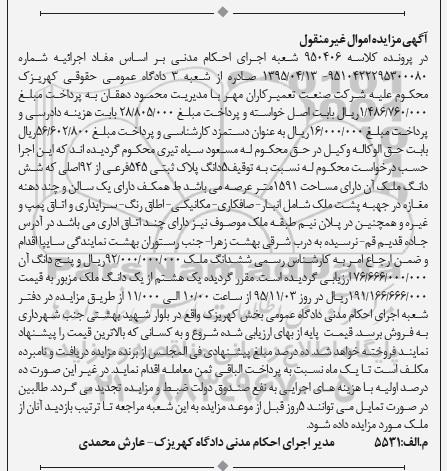 آگهی مزایده اموال غیر منقول
در پرونده کلاسه ۹۵۰۴۰۶ شعبه اجرای احکام مدنی بر اساس مفاد اجرائیه شماره
۹۵۱۰۴۲۲۲۹۵۳۰۰۰۸۰-۱۳۹۵/۰۴/۱۳ صادره از شعبه ۳ دادگاه عمومی حقوقی کهریزک
محکوم علیه شرکت صنعت تعمیرکاران مهر با مدیریت محمود دهقان به پرداخت مبلغ
۱/۴۸۶/۷۶۰/۰۰۰ریال بابت اصل خواسته و پرداخت مبلغ ۲۸/۸۰۵/۰۰۰ بابت هزینه دادرسی و
پرداخت مبلغ ۱۶/۰۰۰/۰۰۰ریال به عنوان دستمزد کارشناسی و پرداخت مبلغ ۵۶/۶۰۲/۸۰۰ریال
بابت حق الوکاله وکیل در حق محکوم له مسعود سیاه تیری محکوم گردیده اند که این اجرا
حسب درخواست محکوم له نسبت به توقیف۵دانگ پلاک ثبتی ۵۴۵فرعی از ۹۲اصلی که شش
دانگ ملک آن دارای مساحت ۱۵۹۱متر عرصه می باشد ط همکف دارای یک سالن و چند دهنه
مغازه در جهیه پشت ملک شامل انبار-صافکاری-مکانیکی-اطاق رنگ-سرایداری و اتاق پمپ و
غیره و همچنین در پلان نیم طبقه ملک موصوف نیز دارای چند اتاق اداری می باشد در آدرس
جاده قدیم قم-نرسیده به درب شرقی بهشت زهرا-جنب رستوران بهشت نمایندگی سایپا اقدام
و ضمن ارجاع امر به کارشناس رسمی ششدانگ ملک ۹۲/۰۰۰/۰۰۰/۰۰۰ریال و پنج دانگ آن
۷۶/۶۶۶/۰۰۰/۰۰۰ارزیابی گردیده است. مقرر گردیده یک هشتم از یک دانگ ملک مزبور به قیمت
۱۹۱/۱۶۶/۶۶۶/۰۰۰ریال در روز ۹۵/۱۱/۰۳ از ساعت ۱۰/۰۰ الی ۱۱/۰۰۰ از طریق مزایده در دفتر
شعبه اجرای احکام مدنی دادگاه عمومی بخش کهریزک واقع در بلوار شهید بهشتی جنب شهرداری
به فروش برسد. قیمت پایه از بهای ارزیابی شده شروع و به کسانی که بالاترین قیمت را پیشنهاد
نمایند فروخته خواهد شد. ده درصد مبلغ پیشنهادی فی المجلس از برنده مزایده دریافت و نامبرده
مکلف است تا یک ماه نسبت به پرداخت الباقی ثمن معامله اقدام نماید. در غیر این صورت ده
درصد اولیه با هزینه های اجرایی به نفع صندوق دولت ضبط و مزایده تجدید می گردد. طالبین
در صورت تمایل می توانند ۵روز قبل از موعد مزایده به این شعبه مراجعه تا ترتیب بازدید آنان از
ملک مورد مزایده داده شود.
م.الف:۵۵۳۱ مدیر اجرای احکام مدنی دادگاه کهریزک-عارش محمدی